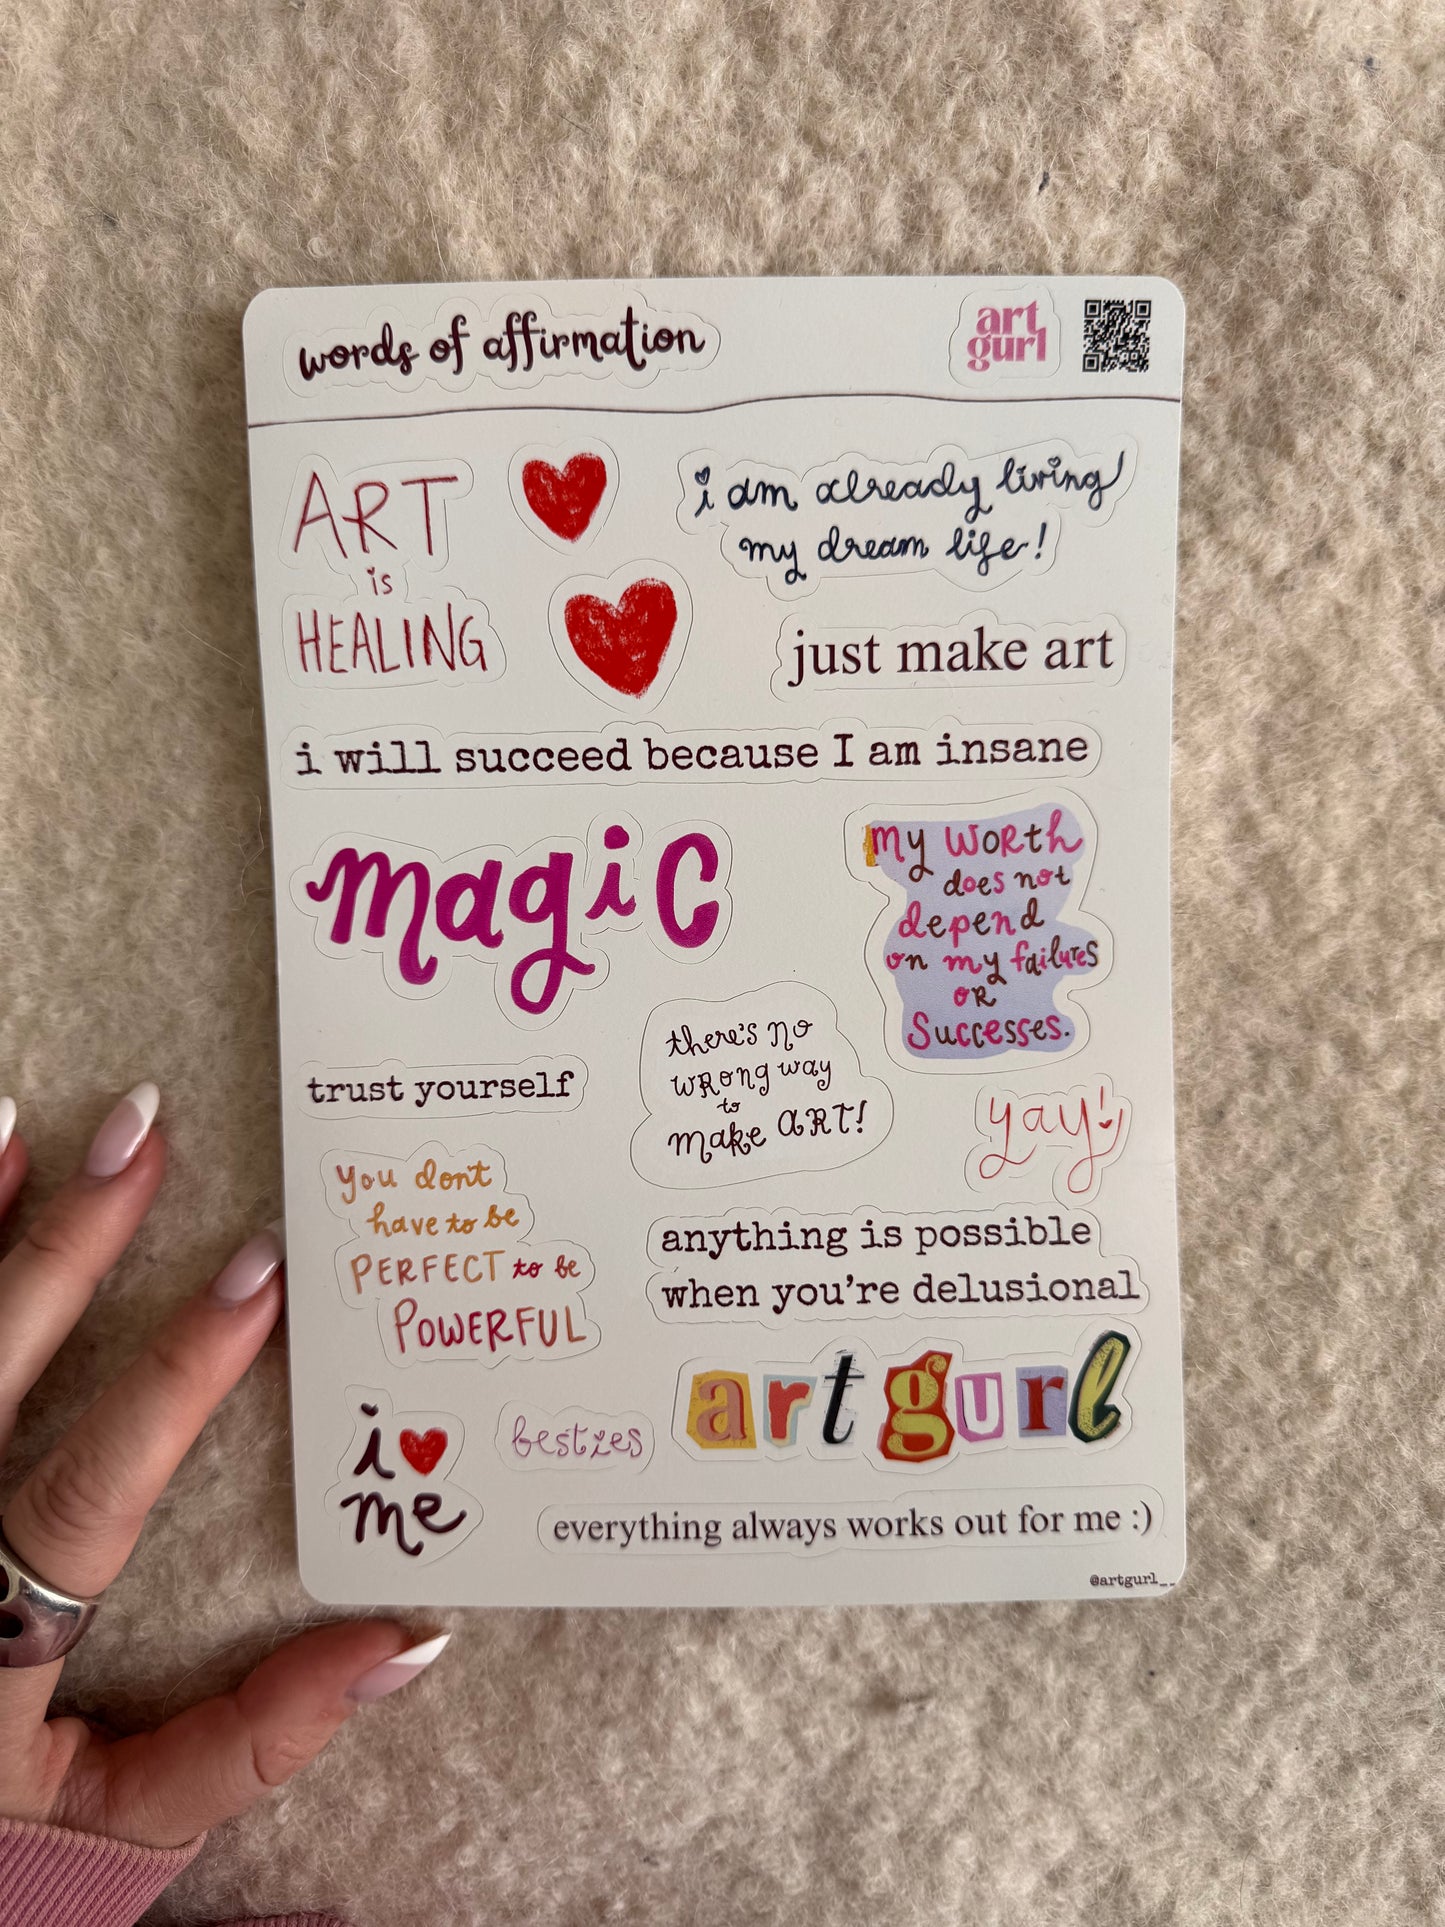 words of affirmation
art
gurl
ART
is
HEALING
i am already living
my dream life!
just make art
i will succeed because I am insane
magic
my WORth
does not
depend
on my failures
OR
Successes.
there's no
wRong way
to
make ART!
trust yourself
yay!
you don't
have to be
PERFECT to be
POWERFUL
anything is possible
when you're delusional
art gurl
i
me
besties
everything always works out for me :)
@artgurl__